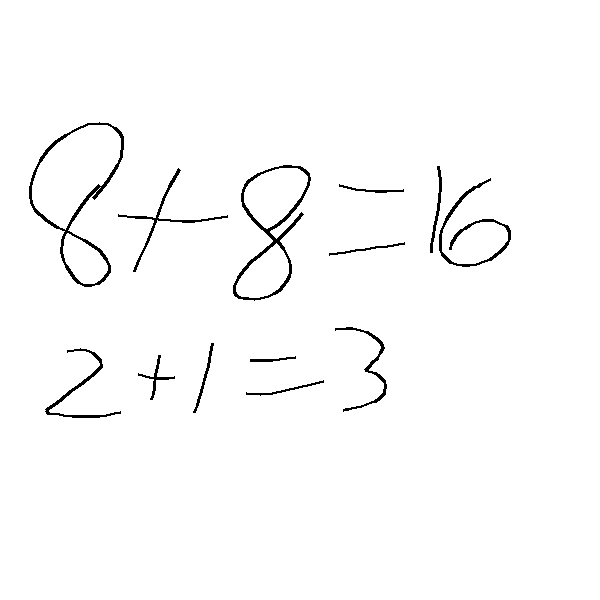 8+8=16
2+1=3